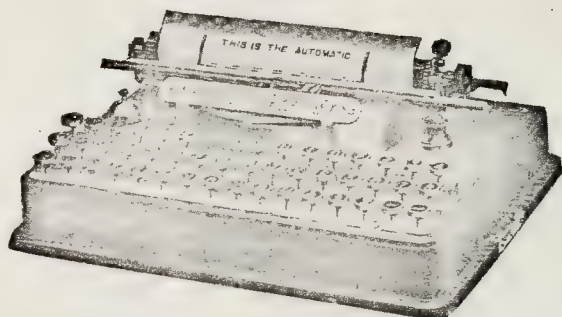 THIS IS THE AUTOMATIC